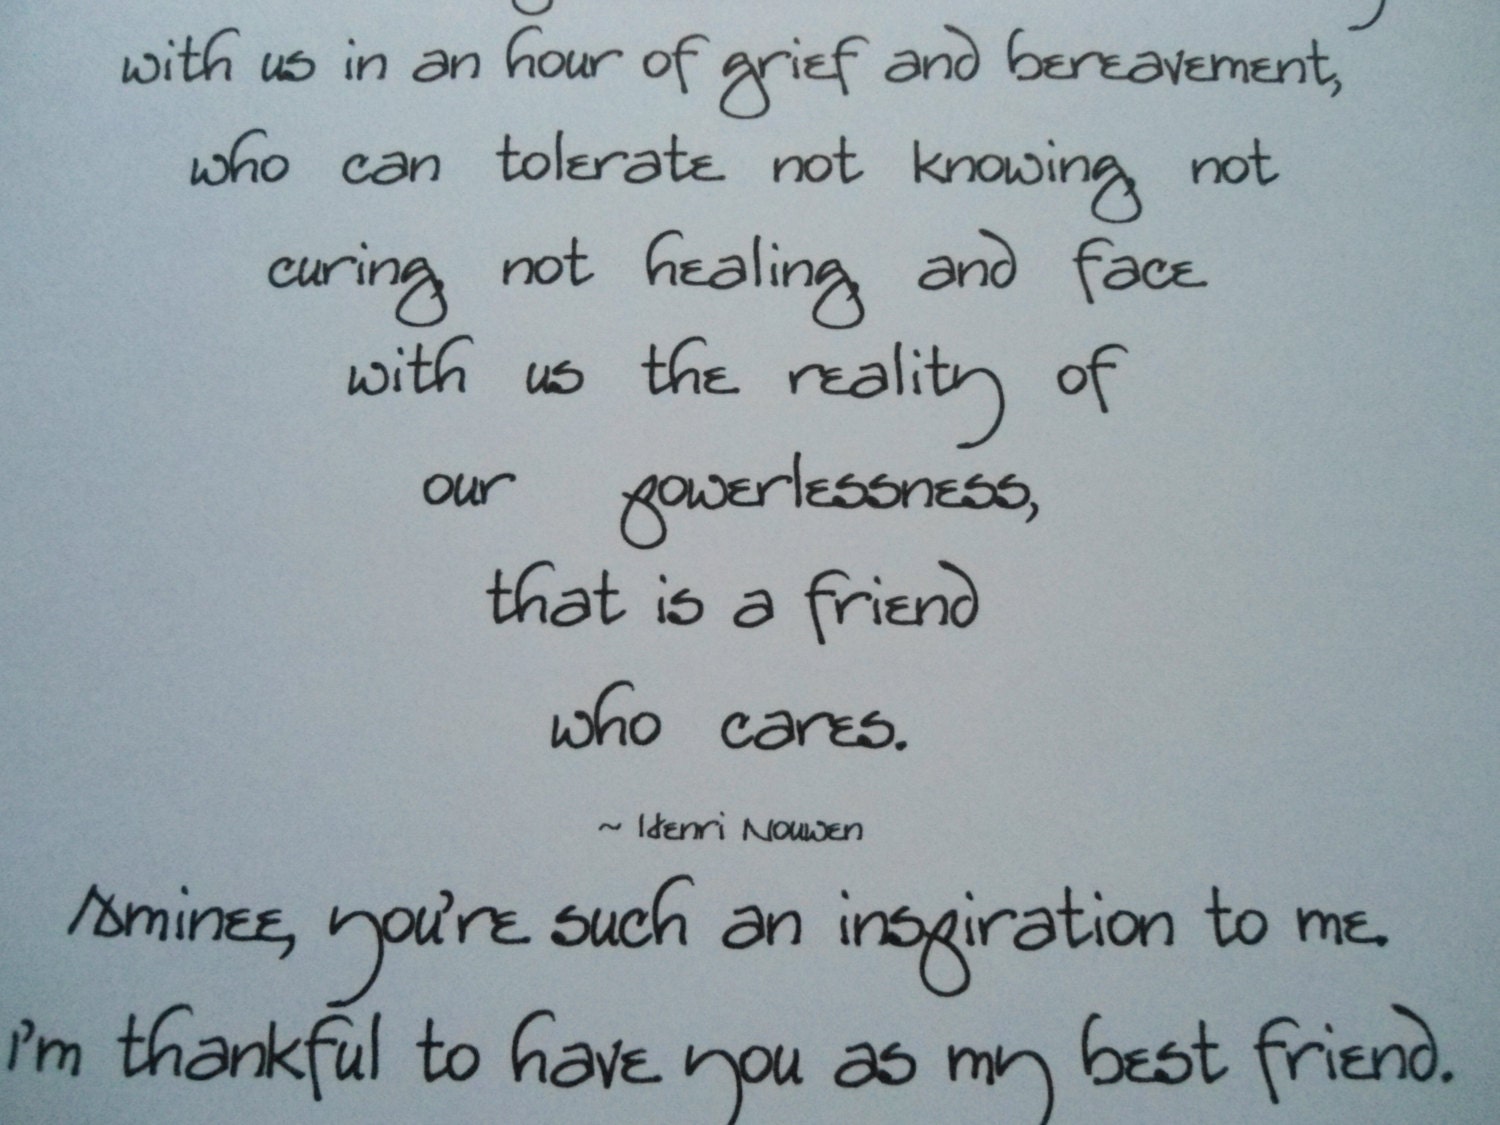 with us in an hour of grief and bereavement,
who can tolerate not knowing not
curing not healing and face
with us the reality of
our powerlessness,
that is a friend
who cares.
~ Henri Nouwen
Aminee, you're such an inspiration to me.
i'm thankful to have you as my best friend.